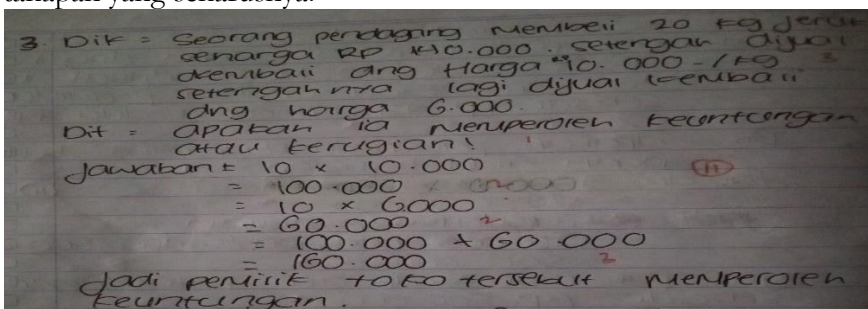 3. Dik = Seorang pedagang membeli 20 kg jeruk
seharga RP 140.000. setengah dijual
kembali dng Harga 10.000-/kg 3
setengahnya lagi dijual kembali
dng harga 6.000.
Dit = apakah ia memperoleh keuntungan
atau kerugian!
Jawaban = 10 x 10.000
= 100.000
= 10 x 6000
= 60.000 2
= 100.000 + 60.000
= 160.000 2
Jadi pemirik toko tersebut memperoleh
keuntungan.
11